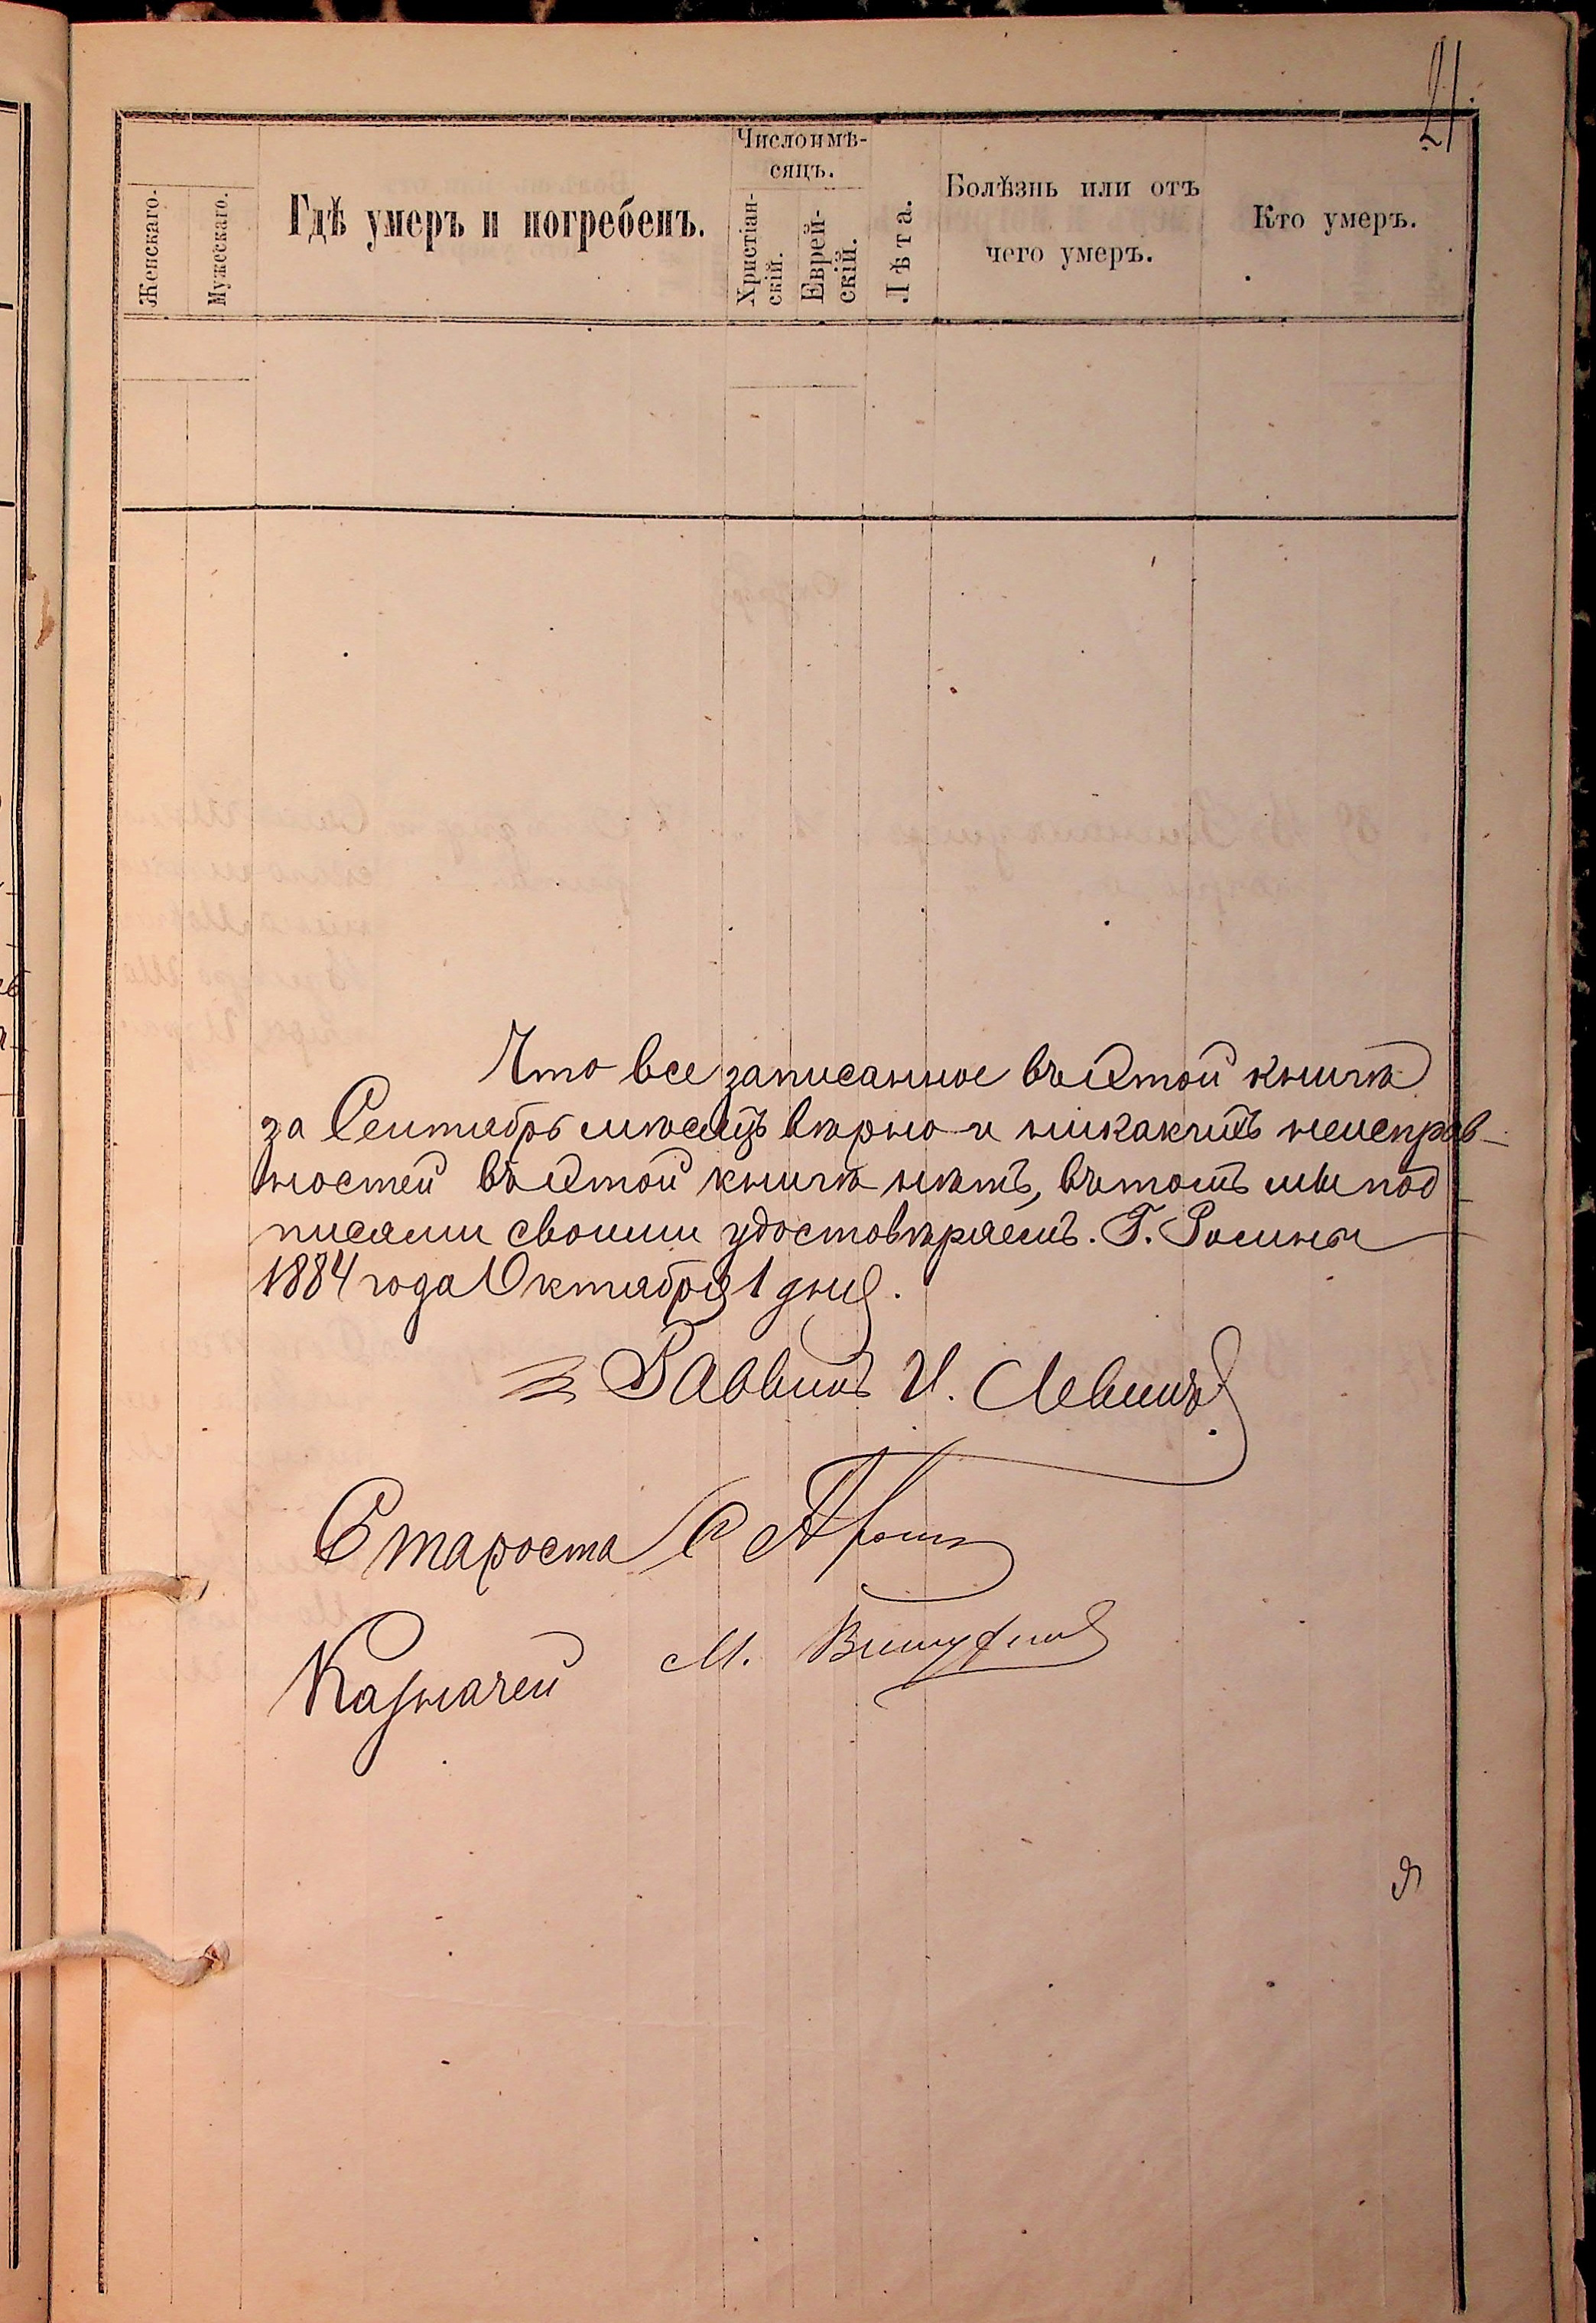 21.
Числоимѣ-
сяцъ.
Женскаго.
Мужескаго.
Гдѣ умеръ и погребенъ.
Христіан-
скій.
Еврей-
скій.
Лѣта.
Болѣзнь или отъ
чего умеръ.
Кто умеръ.
Что все записанное въ этой книгѣ
за Сентябрь мѣсяцъ вѣрно и никакихъ неисправ-
ностей въ этой книгѣ нѣтъ, въ томъ мы под
писями своими удостовѣряемъ. Г. Росины
1884 года Октября 1 дня.
Раввинъ И. Левинъ
Староста
Казначей М.